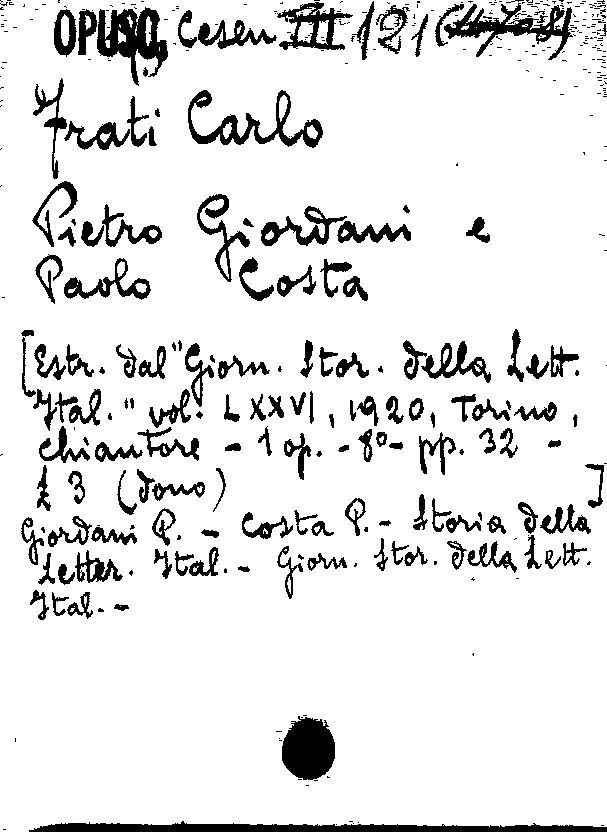 OPUSC. Cesen. III 121 (4708)
Frati Carlo
Pietro Giordani e
Paolo Costa
[Estr. dal "Giorn. Stor. della Lett.
Ital." vol. LXXVI, 1920, Torino,
Chiantore - 1 op. - 8° - pp. 32 -
£ 3 (dono)]
Giordani P. - Costa P. - Storia della
Letter. Ital. - Giorn. Stor. della Lett.
Ital. -